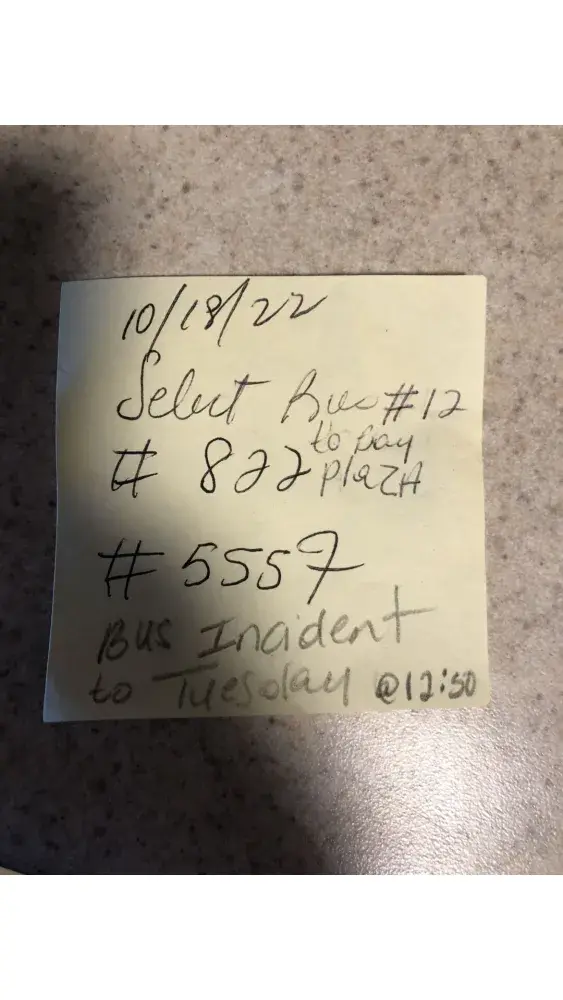 10/18/22
Select Bus #12
to bay
# 822 plazA
# 5557
Bus Incident
to Tuesday @12:50